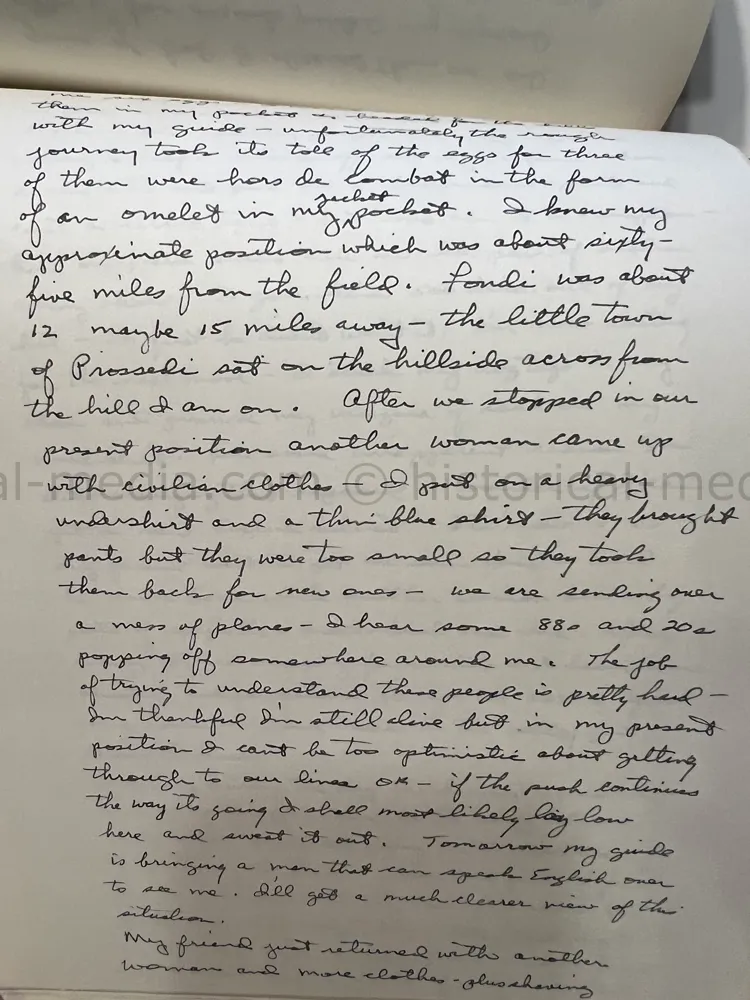 them in my pocket
with my guide - unfortunately the rough
journey took its toll of the eggs for three
of them were hors de combat in the form
of an omelet in my jacket pocket. I knew my
approximate position which was about sixty-
five miles from the field. Fondi was about
12 maybe 15 miles away - the little town
of Prossedi sat on the hillside across from
the hill I am on. After we stopped in our
present position another woman came up
with civilian clothes - I put on a heavy
undershirt and a thin blue shirt - they brought
pants but they were too small so they took
them back for new ones - we are sending over
a mess of planes - I hear some 88s and 20s
popping off somewhere around me. The job
of trying to understand these people is pretty hard -
Im thankful I'm still alive but in my present
position I cant be too optimistic about getting
through to our lines OK - if the push continues
the way its going I shall most likely lay low
here and sweat it out. Tomorrow my guide
is bringing a man that can speak English over
to see me. I'll get a much clearer view of this
situation.
My friend just returned with another
woman and more clothes - plus shaving
al-media.com © historical-med